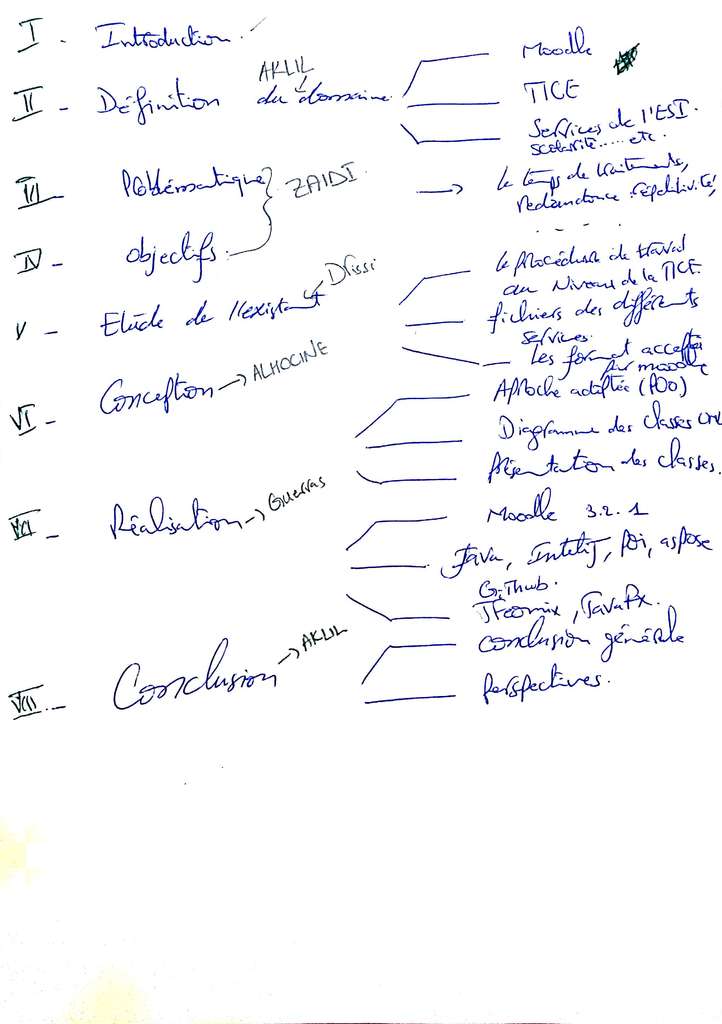 I - Introduction
II - Définition du domaine
AKLIL
Moodle
TICE
Services de l'ESI.
scolarité..... etc.
III - Problématique
ZAIDI
le temps de traitements,
Redondance, répétitivité,
IV - objectifs.
V - Etude de l'existant
Drissi
le procédure de travail
au Niveau de la TICE.
fichiers des différents
services.
Les format accepté
par moodle
VI - Conception → ALHOCINE
Aproche adoptée (POO)
Diagramme des classes
Présentation des classes.
VII - Réalisation → Guerras
Moodle 3.2.1
Java, IntelliJ, Poi, aspose
GitHub.
JFeonix, JavaFx.
VIII - Conclusion → AKLIL
conclusion générale
perspectives.